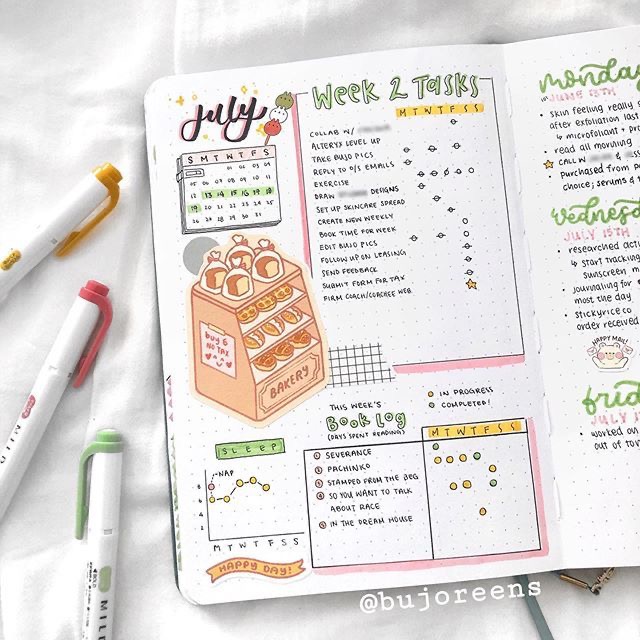 July
S M T W T F S
01 02 03 04
05 06 07 08 09 10 11
12 13 14 15 16 17 18
19 20 21 22 23 24 25
26 27 28 29 30 31
Week 2 Tasks
M T W T F S S
COLLAB W/
ALTERYX LEVEL UP
TAKE BUJO PICS
REPLY TO D/S EMAILS
EXERCISE
DRAW DESIGNS
SET UP SKINCARE SPREAD
CREATE NEW WEEKLY
BOOK TIME FOR WEEK
EDIT BUJO PICS
FOLLOW UP ON LEASING
SEND FEEDBACK
SUBMIT FORM FOR TAX
FIRM COACH/COACHEE WEB
buy 6
NO TAX
BAKERY
SLEEP
NAP
8
6
4
2
M T W T F S S
HAPPY DAY!
THIS WEEK'S
BOOK LOG
(DAYS SPENT READING)
IN PROGRESS
COMPLETED!
M T W T F S S
1 SEVERANCE
2 PACHINKO
3 STAMPED FROM THE BEG
4 SO YOU WANT TO TALK
ABOUT RACE
5 IN THE DREAM HOUSE
monday
JUNE 13TH
skin feeling really s
after exfoliation last
↳ microfoliant + p
read all morning
CALL W/
purchased from p
choice; serums & t
Wednesd
JULY 15TH
researched acti
↳ start tracking
sunscreen m
journaling for
most the day
stickyrice co
order received
HAPPY MAIL!
frid
JULY 1
worked on
out of tow
MILD
MILD
MILD
@bujoreens